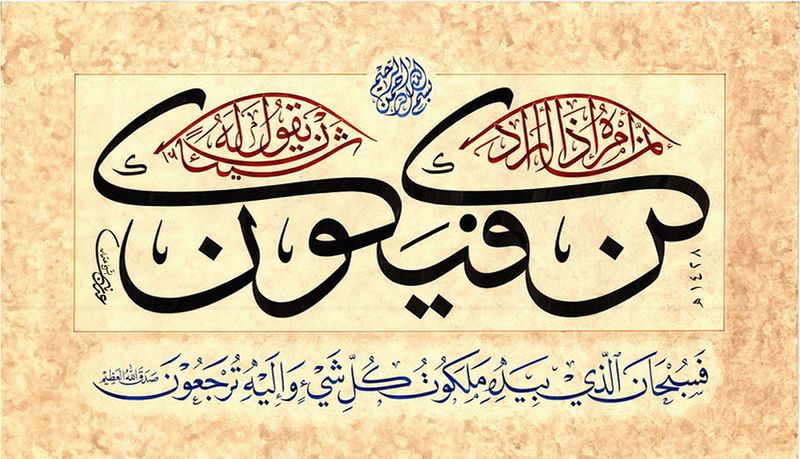 بسم الله الرحمن الرحيم
إنما أمره إذا أراد شيئاً أن يقول له
كن فيكون
١٤٢٨ هـ
فَسُبْحَانَ الَّذِي بِيَدِهِ مَلَكُوتُ كُلِّ شَيْءٍ وَإِلَيْهِ تُرْجَعُونَ صدق الله العظيم